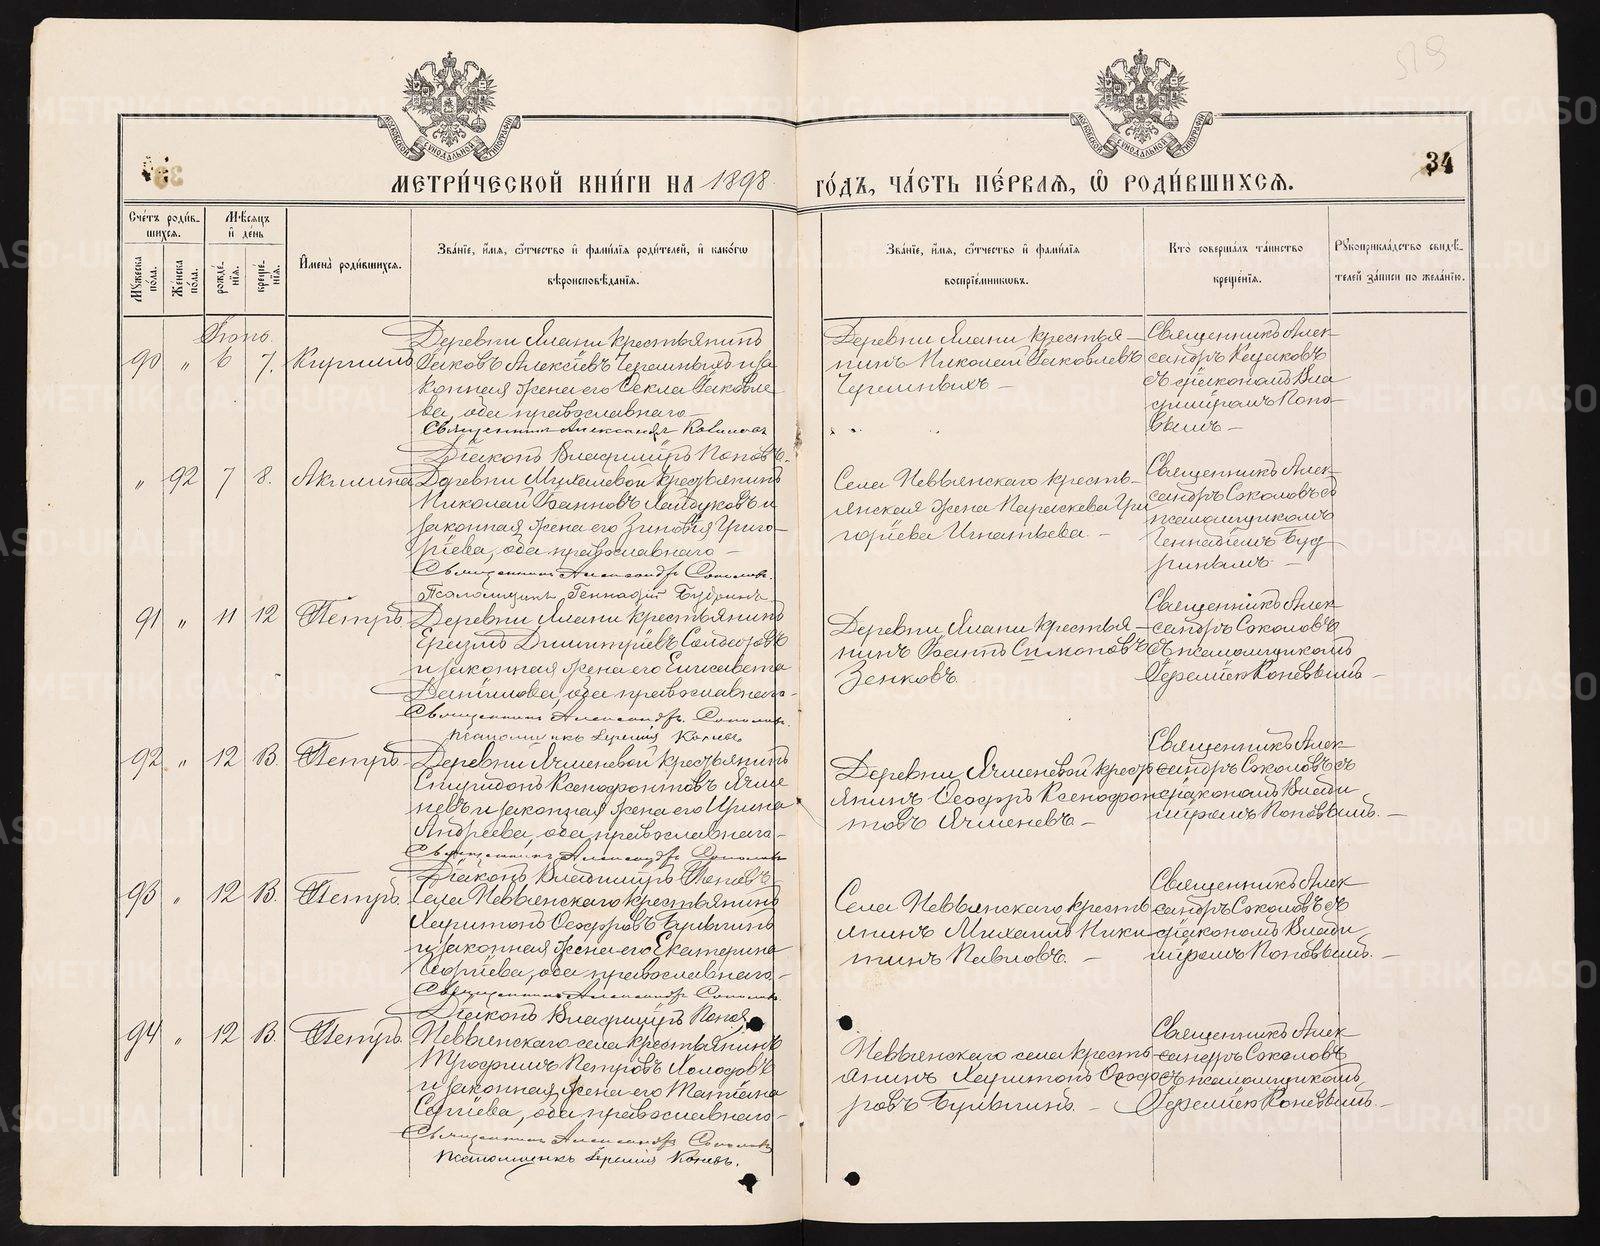 34
МЕТРИ́ЧЕСКОЙ КНИ́ГИ НА 1898 ГО́ДЪ, ЧА́СТЬ ПЕ́РВАѦ, Ѡ҆ РОДИ́ВШИХСѦ.
Сче́тъ роди́в-
шихсѧ.
Мꙋ́жеска по́ла.
Же́нска по́ла.
Мѣ́сѧцъ
и҆ де́нь
рожде́-
нїѧ.
креще́-
нїѧ.
И҆мена̀ роди́вшихсѧ.
Зва́нїе, и҆́мѧ, ѻ҆́тчество и҆ фами́лїѧ роди́телей, и҆ како́гѡ
вѣроисповѣ́данїѧ.
Зва́нїе, и҆́мѧ, ѻ҆́тчество и҆ фами́лїѧ
воспрїе́мникѡвъ.
Кто̀ соверша́лъ та́инство
креще́нїѧ.
Рꙋкоприкла́дство свидѣ́-
телей за́писи по жела́нїю.
90 " 6 7. Кириллъ
Деревни Ялани крестьянинъ
Іаковъ Алексѣевъ Черемныхъ и за
конная жена его Ѳекла Іаковле
ва, оба православнаго
Священникъ Александръ
Діаконъ Владиміръ Поповъ.
Деревни Ялани крестья-
нинъ Николай Іаковлевъ
Черемныхъ —
Священникъ Алек-
сандръ
съ діакономъ Вла
диміромъ Попо-
вымъ —
" 92 7 8. Акилина
Деревни крестьянинъ
Николай Іоанновъ и
законная жена его Зиновія Григо-
ріева, оба православнаго —
Священникъ Александръ Соколовъ.
Псаломщикъ Геннадій Будринъ
Села Невьянскаго кресть-
янская жена Параскева Гри
горіева Игнатьева. —
Священникъ Алек-
сандръ Соколовъ съ
псаломщикомъ
Геннадіемъ Буд
ринымъ —
91 " 11 12 Петръ.
Деревни Ялани крестьянинъ
Еразмъ Димитріевъ Солдатовъ
и законная жена его Елисавета
Даніилова, оба православнаго-
Священникъ Александръ Соколовъ.
псаломщикъ Іеремія Коневъ
Деревни Ялани крестья-
нинъ Іоаннъ Симоновъ
Зенковъ
Священникъ Алек-
сандръ Соколовъ
съ псаломщикомъ
Іереміею Коневымъ —
92 " 12 13. Петръ
Деревни Ячменевой крестьянинъ
Спиридонъ Ксенофонтовъ Ячме
невъ и законная жена его Ирина
Андреева, оба православнаго-
Священникъ Александръ Соколовъ
Діаконъ Владиміръ Поповъ
Деревни Ячменевой кресть
янинъ Ѳеодоръ Ксенофон
товъ Ячменевъ —
Священникъ Алек-
сандръ Соколовъ съ
діакономъ Влади
міромъ Поповымъ. —
93 " 12 13. Петръ.
Села Невьянскаго крестьянинъ
Харитонъ Ѳеодоровъ Булыгинъ
и законная жена его Екатерина
Георгіева, оба православнаго-
Священникъ Александръ Соколовъ.
Діаконъ Владиміръ Поповъ
Села Невьянскаго кресть
янинъ Михаилъ Ники
тинъ Павловъ. —
Священникъ Алек-
сандръ Соколовъ съ
діакономъ Влади
міромъ Поповымъ. —
94 " 12 13. Петръ.
Невьянскаго села крестьянинъ
Трофимъ Петровъ Холодовъ
и законная жена его Татіана
Сергіева, оба православнаго-
Священникъ Александръ Соколовъ
псаломщикъ Іеремія Коневъ.
Невьянскаго села кресть
янинъ Харитонъ Ѳеодо
ровъ Булыгинъ. —
Священникъ Алек-
сандръ Соколовъ
съ псаломщикомъ
Іереміею Коневымъ. —
METRIKI.GASO-URAL.RU